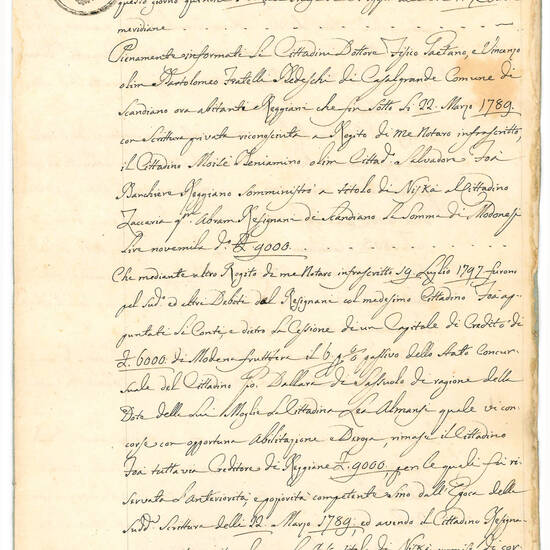 questo giorno
meridiane.
Pienamente informati li Cittadini Dottore Fisico Gaetano, e Vincenzo
olim Bartolomeo Fratelli Tedeschi di Casalgrande Comune di
Scandiano ora abitanti a Reggio che fin sotto li 22. Marzo 1789.
con Scrittura privata riconosciuta a Rogito di me Notaro infrascritto,
il Cittadino Moisè Beniamino olim Cittad.o Salvadore Foà
Banchiere Reggiano somministrò a titolo di Niskà al Cittadino
Zaccaria q.m Abram Resignani di Scandiano la Somma di Modonesi
Lire novemila d.o £ 9000.
Che mediante altro Rogito di me Notaro infrascritto 19 Luglio 1797 furono
pel sud.o ed altri Debiti del Resignani col medesimo Cittadino Foà ap-
puntati li Conti, e dietro la Cessione di un Capitale di Credito di
£. 6000. di Modena fruttifere il 6 p % passivo dello Stato Concur-
suale del Cittadino Dallara di Sassuolo di ragione della
Dote della Lui Moglie la Cittadina Lea Almansi quale vi con-
corse con opportuna Abilitazione e Deroga rimase il Cittadino
Foà tuttavia Creditore di Reggiane £. 9000. per le quali fu ri-
servata l'anteriorità, e poziorità competente sino dall'Epoca della
Sudd.a Scrittura delli 22 Marzo 1789, ed avendo il Cittadino Resigna-